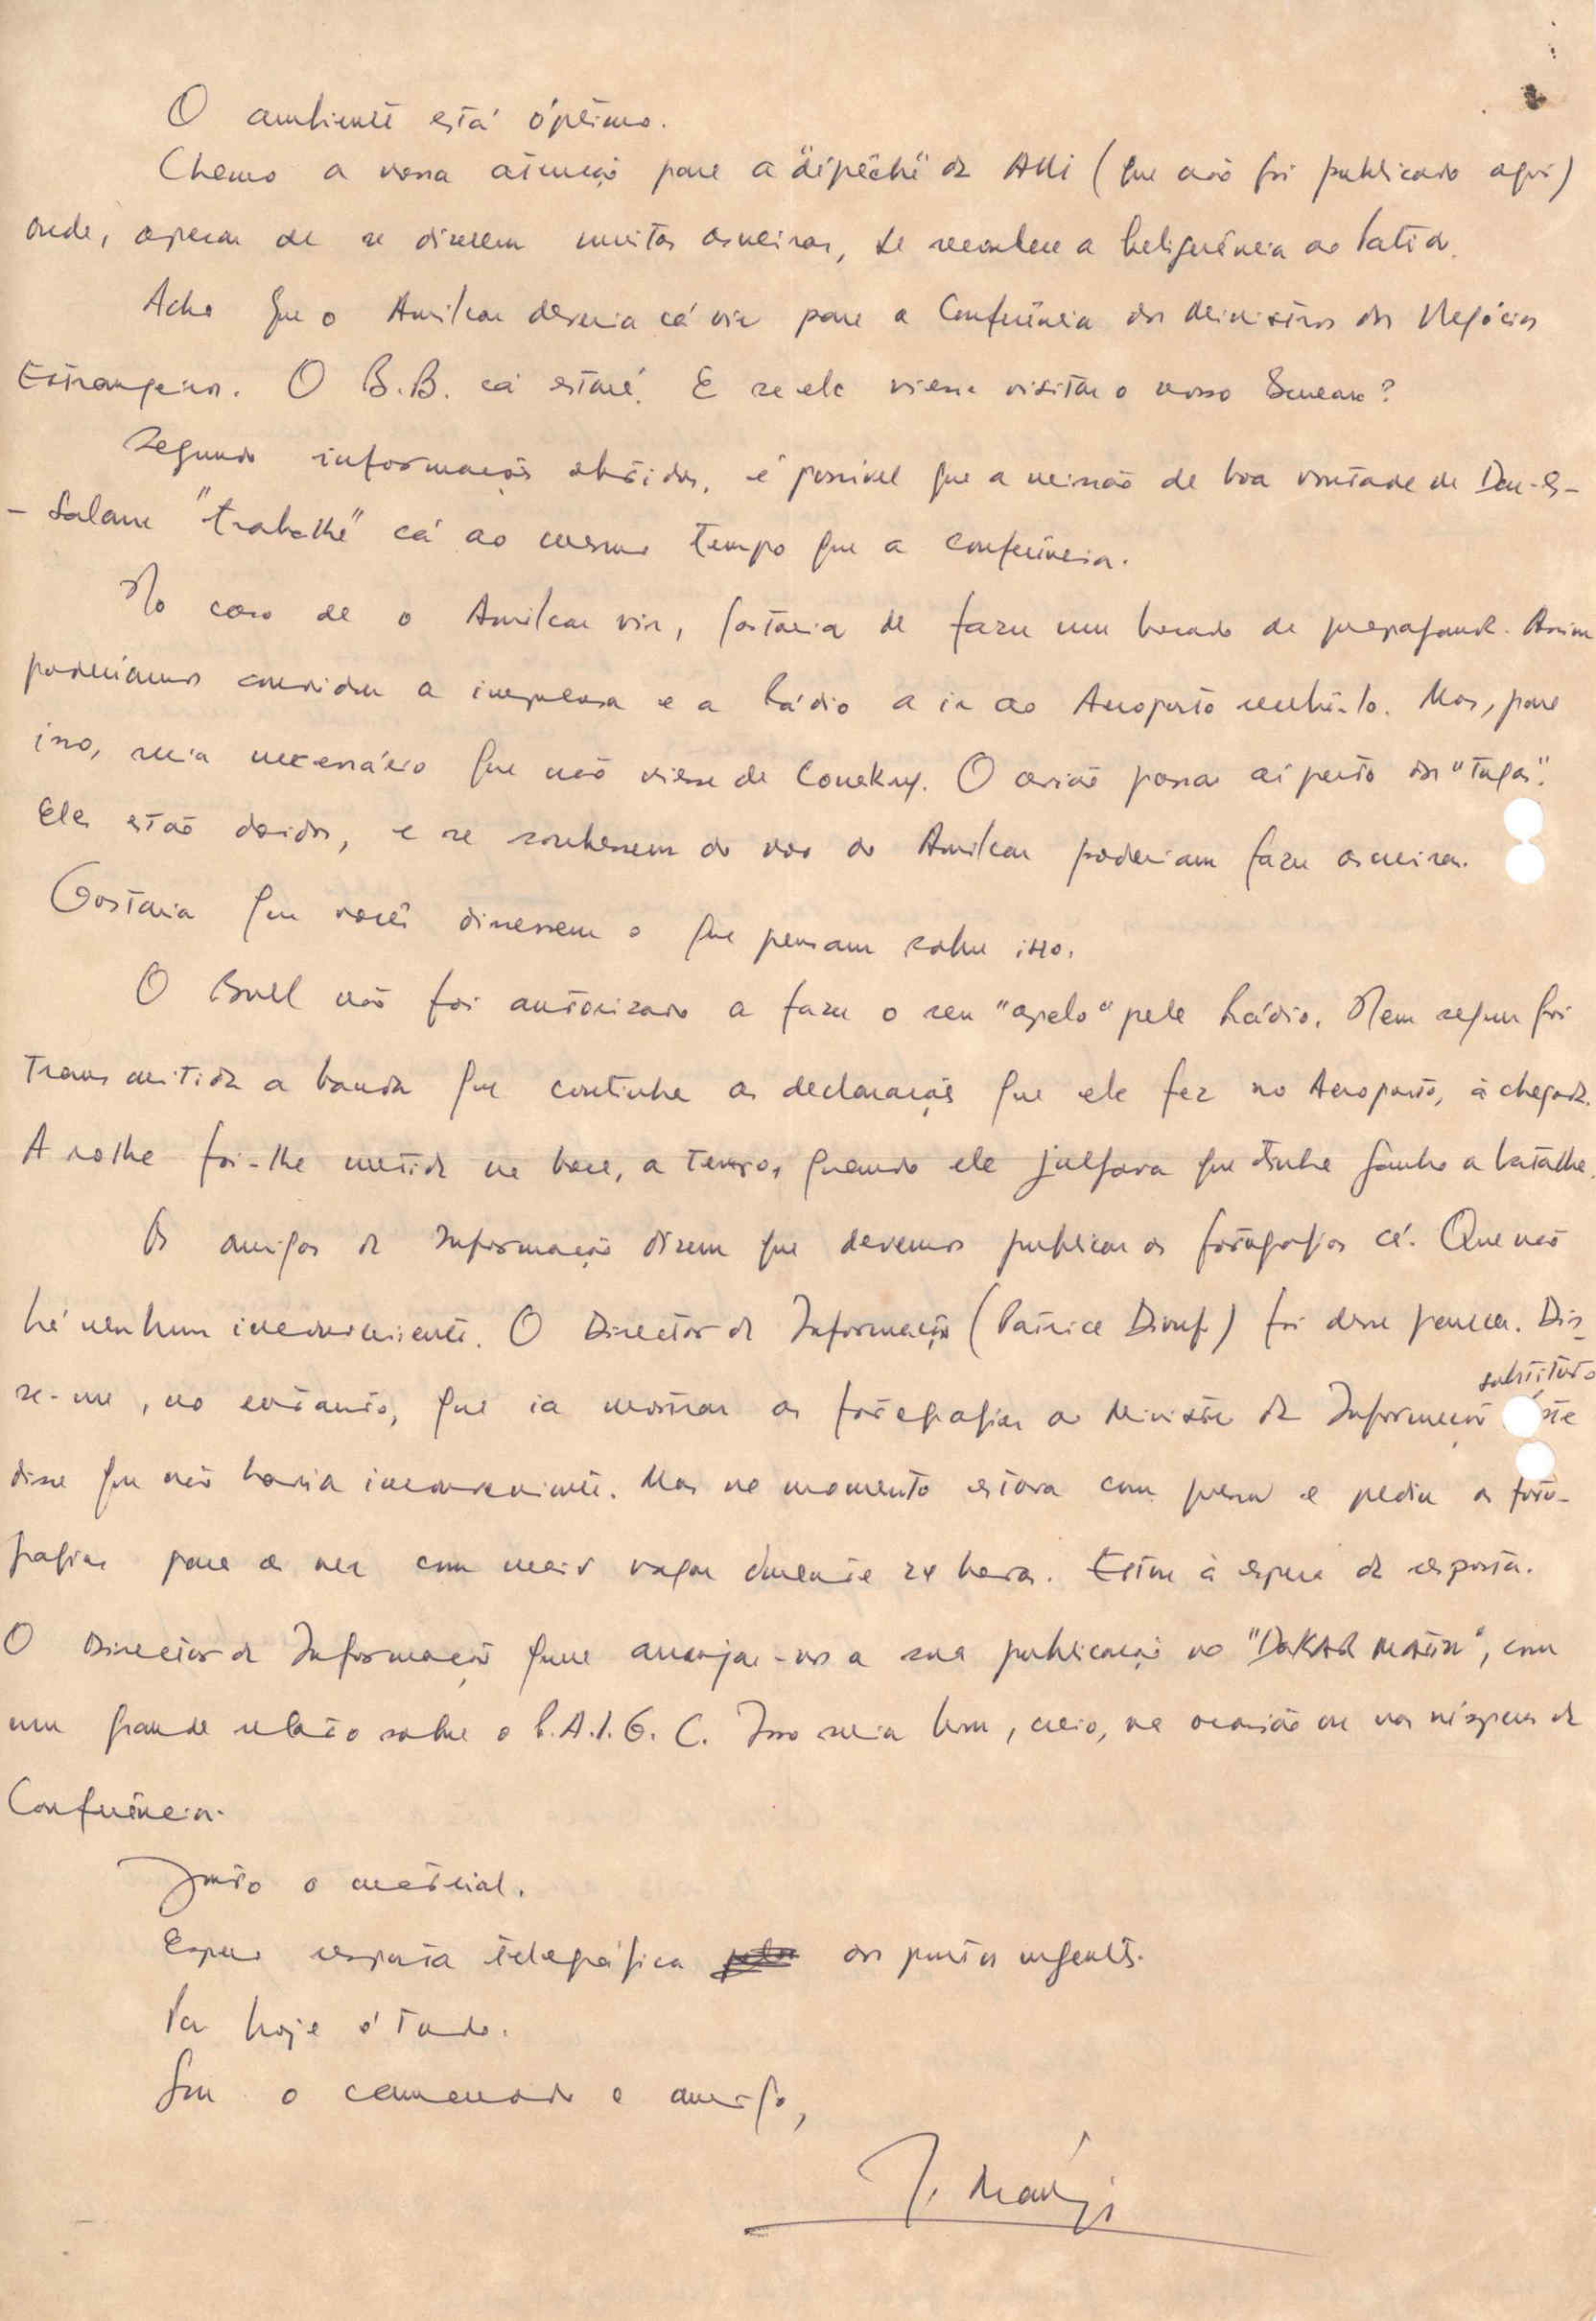 O ambiente está óptimo.
Chamo a vossa atenção para a "dépêche" da (que não foi publicado aqui)
onde, apesar de se dizerem muitas asneiras, se reconhece a beligerância ao Partido.
Acho que o Amilcar deveria cá vir para a Conferência dos Ministros dos Negócios
Estrangeiros. O B.B. cá estará. E se ele viesse visitar o nosso Bureau?
Segundo informações obtidas, é possível que a missão de boa vontade de Dar-Es-
-Salam "trabalhe" cá ao mesmo tempo que a conferência.
No caso de o Amilcar vir, gostaria de fazer um bocado de propaganda. Assim
poderíamos convidar a imprensa e a Rádio a ir ao Aeroporto recebê-lo. Mas, para
isso, seria necessário que não viesse de Conakry. O avião passa aí perto dos "tugas".
Eles estão doidos, e se soubessem do voo do Amilcar poderiam fazer asneiras.
Gostaria que vocês dissessem o que pensam sobre isso.
O Bull não foi autorizado a fazer o seu "apelo" pela Rádio. Nem sequer foi
transmitida a banda que continha as declarações que ele fez no Aeroporto, à chegada.
A rolha foi-lhe metida na boca, a tempo, quando ele julgava que tinha ganho a batalha.
Os amigos da Informação dizem que devemos publicar as fotografias cá. Que não
há nenhum inconveniente. O Director da Informação (Patrice Diouf) foi desse parecer. Dis-
se-me, no entanto, que ia mostrar as fotografias ao Ministro da Informação substituto
disse que não havia inconveniente. Mas no momento estava com pressa e pediu as foto-
grafias para as ver com mais vagar durante 24 horas. Estou à espera da resposta.
O Director da Informação quer arranjar-nos a sua publicação no "DAKAR MATIN", com
um grande relato sobre o P.A.I.G.C. Isso seria bom, creio, na ocasião ou nas vésperas da
Conferência.
Junto o material.
Espero resposta telegráfica dos pontos urgentes.
Por hoje é tudo.
Seu o camarada e amigo,